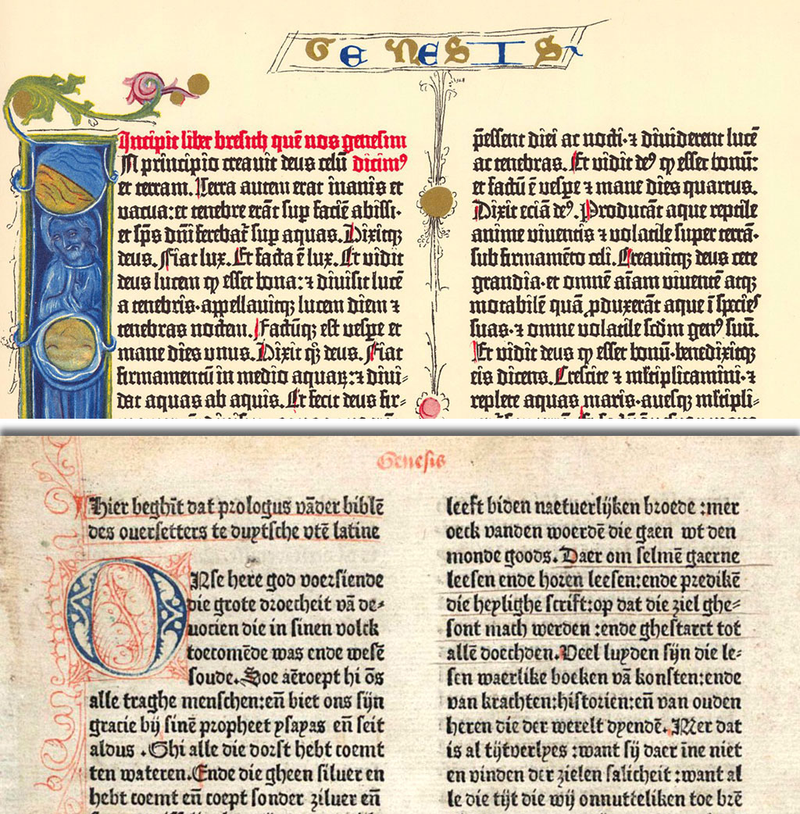 GENESIS
Incipit liber bresich quē nos genesim
N principio creauit deus celū dicimꝰ
et terram. Terra autem erat inanis et
vacua: et tenebre erāt sup faciē abissi·
et sp̄s dn̄i ferebat͛ sup aquas. Dixitqꝫ
deus. Fiat lux. Et facta ē lux. Et vidit
deus lucem ꝙ esset bona: ⁊ diuisit lucē
a tenebris· appellauitqꝫ lucem diem ⁊
tenebras noctem. Factūqꝫ est vespe et
mane dies vnus. Dixit qꝫ deus. Fiat
firmamentū in medio aquaꝝ: ⁊ diui⸗
dat aquas ab aquis. Et fecit deus fir⸗
p̄essent diei ac nocti· ⁊ diuiderent lucē
ac tenebras. Et vidit deꝰ ꝙ esset bonū:
et factū ē vespe ⁊ mane dies quartus.
Dixit eciā deꝰ. Producāt aque reptile
anime viuentis ⁊ volatile super terrā·
sub firmamēto celi. Creauitqꝫ deus cete
grandia· et omnē aīam viuentē atqꝫ
motabilē quā ꝓduxerāt aque ī species
suas· ⁊ omne volatile scdm genꝰ suū.
Et vidit deus ꝙ esset bonū· benedixitqꝫ
eis dicens. Crescite ⁊ mltiplicamini· ⁊
replete aquas maris· auesqꝫ mltipli⸗
Genesis
Hier beghīt dat prologus vāder biblē
des ouersetters te duytsche vtē latine
ONse here god voersiende
die grote droecheit vā de⸗
uocien die in sinen volck
toecomēde was ende wesē
soude. Soe aēroept hi ōs
alle traghe menschen: eñ biet ons sijn
gracie bij sinē propheet ysayas eñ seit
aldus . Ghi alle die dorst hebt coemt
ten wateren. Ende die gheen siluer en
hebt coemt eñ coept sonder ziluer eñ
leeft biden naetuerlijken broede :mer
oeck vanden woerdē die gaen wt den
monde goods. Daer om selmē gaerne
leesen ende horen leesen: ende predikē
die heylighe scrift: op dat die ziel ghe⸗
sont mach werden :ende ghestarct tot
allē doechden. Veel luyden sijn die le⸗
sen waerlike boeken vā konsten: ende
van krachten: historien: eñ van ouden
heren die der werelt dyendē. Mer dat
is al tijtverlyes : want sij daer īne niet
en vinden der zielen salicheit : want al
le die tijt die wij onnutteliken toe brē